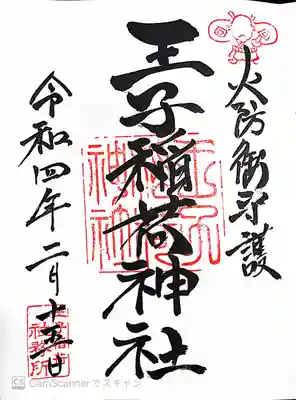 火防御守護
王子稲荷神社
令和四年二月十五日
王子稲荷
社務所
CS CamScannerでスキャン